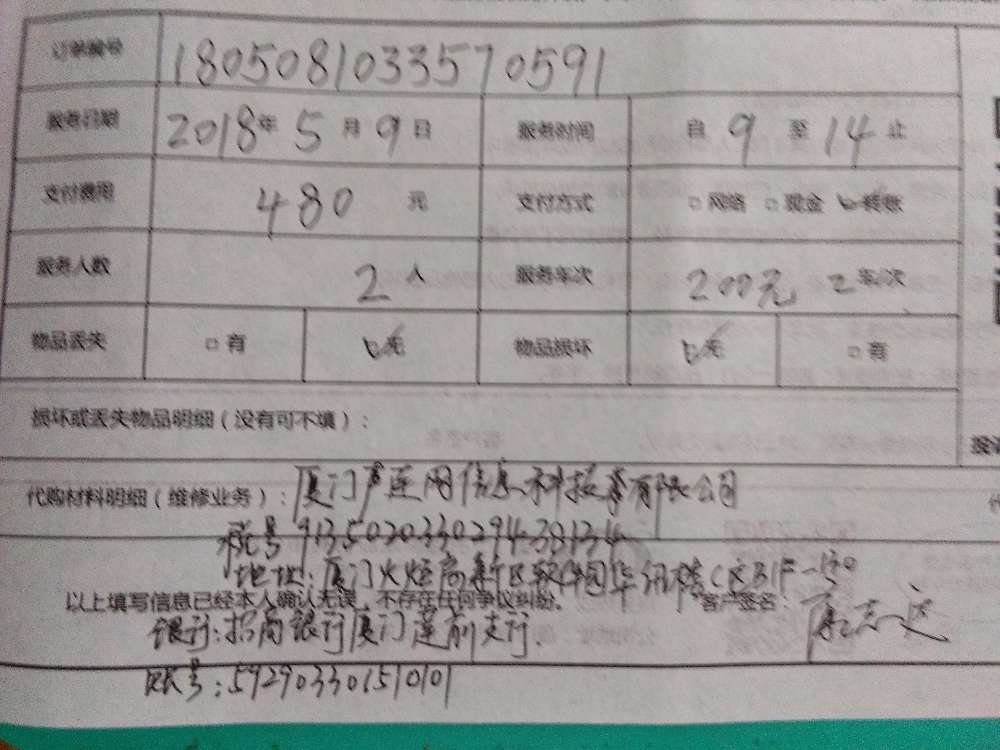 订单编号 1805081033570591
服务日期 2018年 5月 9日 服务时间 自 9 至 14 止
支付费用 480 元 支付方式 网络 现金 转账
服务人数 2人 服务车次 200元 2车/次
物品丢失 有 无 物品损坏 无 有
损坏或丢失物品明细（没有可不填）：
代购材料明细（维修业务）： 厦门 连网信息科技 有限公司
税号
地址：厦门火炬高新区软件园华讯楼C区B1F-
以上填写信息已经本人确认无误，不存在任何争议纠纷。 客户签名：
银行：招商银行厦门莲前支行.
账号：592903301510101